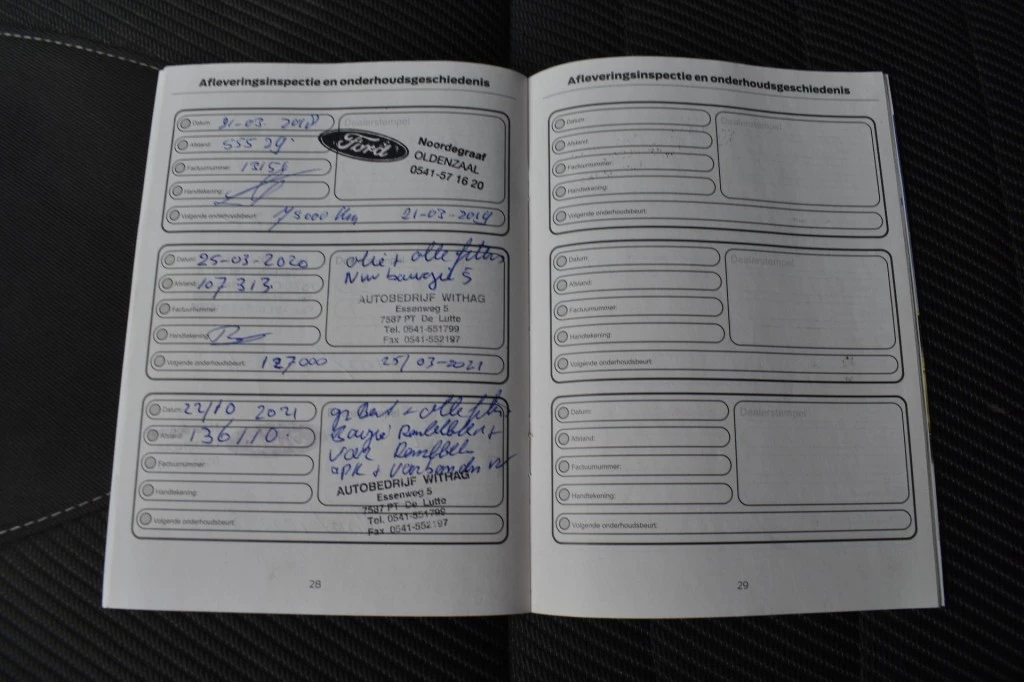 Afleveringsinspectie en onderhoudsgeschiedenis
Datum: 21-03 2018
Dealerstempel
Afstand: 55529
Ford
Noordegraaf
OLDENZAAL
0541-57 16 20
Factuurnummer: 13156
Handtekening:
Volgende onderhoudsbeurt: 75000 Km 21-03-2019
Datum: 25-03-2020
olie + alle filters
Afstand: 107 313
AUTOBEDRIJF WITHAG
Essenweg 5
7587 PT De Lutte
Tel. 0541-551799
Fax 0541-552197
Factuurnummer:
Handtekening:
Volgende onderhoudsbeurt: 127000 25/03-2021
Datum: 22/10 2021
gr Beurt + alle filters
Afstand: 136110
apk +
Factuurnummer:
AUTOBEDRIJF WITHAG
Essenweg 5
7587 PT De Lutte
Tel. 0541-551799
Fax 0541-552197
Handtekening:
Volgende onderhoudsbeurt:
28
Afleveringsinspectie en onderhoudsgeschiedenis
Datum:
Dealerstempel
Afstand:
Factuurnummer:
Handtekening:
Volgende onderhoudsbeurt:
Datum:
Dealerstempel
Afstand:
Factuurnummer:
Handtekening:
Volgende onderhoudsbeurt:
Datum:
Dealerstempel
Afstand:
Factuurnummer:
Handtekening:
Volgende onderhoudsbeurt:
29